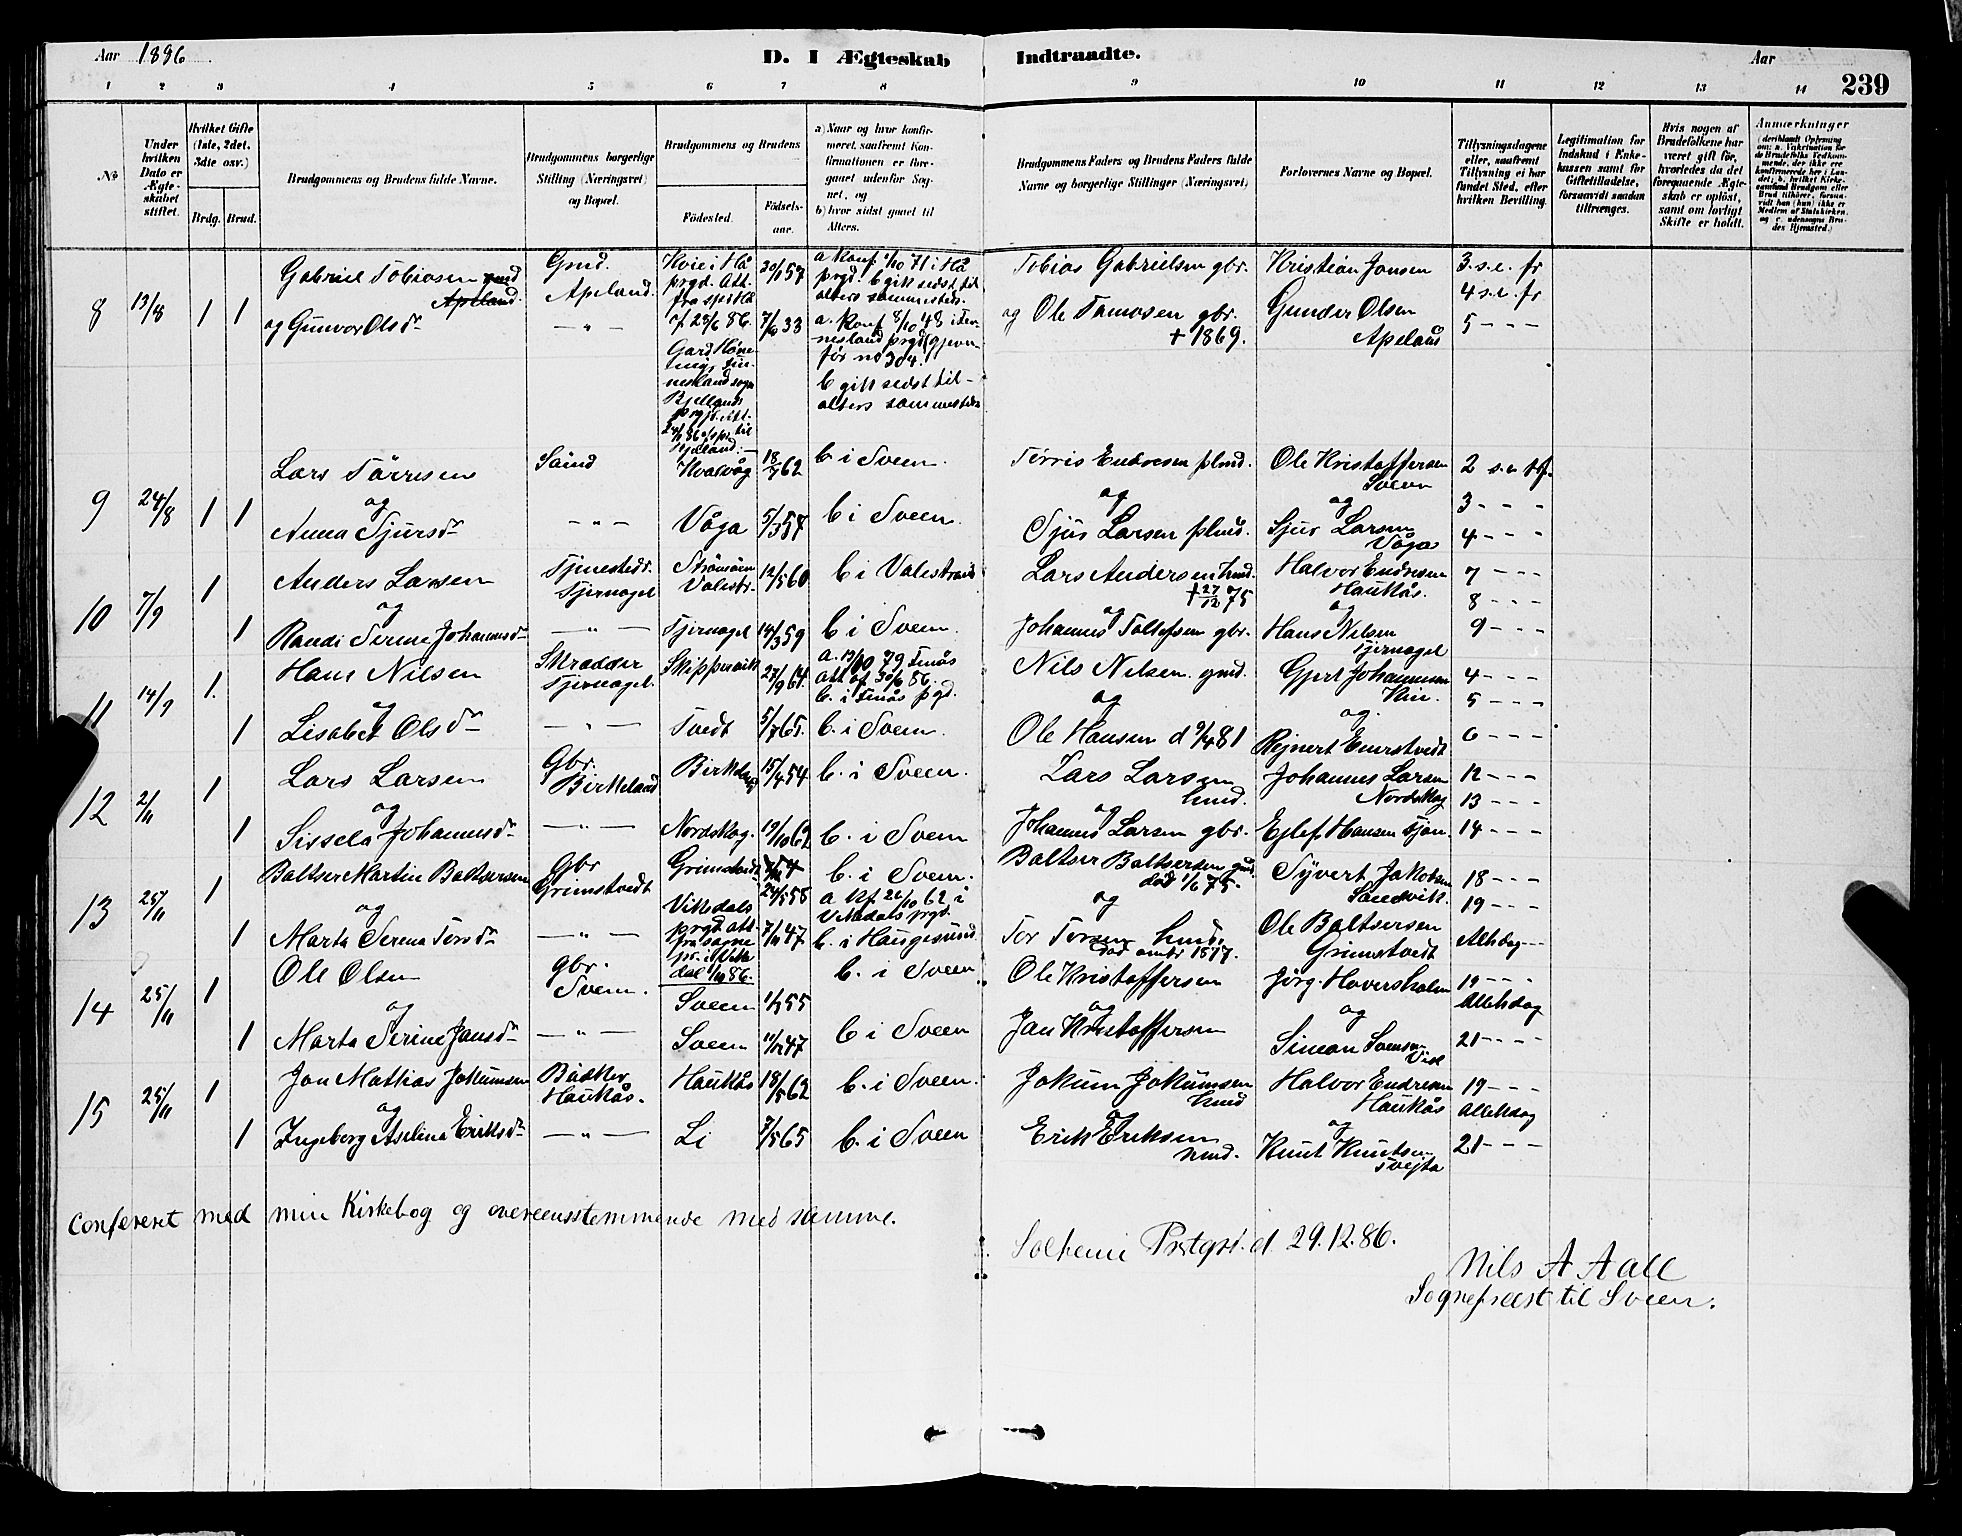 Aar 1886
D. I Ægteskab Indtraadte.
Aar
239
1 2 3 4 5 6 7 8 9 10 11 12 13 14
No
Under hvilken Dato er Ægteskabet stiftet.
Hvilket Gifte (1ste, 2det, 3die osv.)
Brdg. Brud.
Brudgommens og Brudens fulde Navne.
Brudgommens borgerlige Stilling (Næringsvei) og Bopæl.
Brudgommens og Brudens
Fødested.
Fødselsaar.
a) Naar og hvor konfirmeret, saafremt Konfirmationen er foregaaet udenfor Sognet, og
b) hvor sidst gaaet til Alters.
Brudgommens Faders og Brudens Faders fulde Navne og borgerlige Stillinger (Næringsvei)
Forlovernes Navne og Bopæl.
Tillysningsdagene eller, saafremt Tillysning ei har fundet Sted, efter hvilken Bevilling.
Legitimation for Indskud i Enkekassen samt for Giftetilladelse, forsaavidt saadan tiltrænges.
Hvis nogen af Brudefolkene har været gift før, hvorledes da det foregaaende Ægteskab er opløst, samt om lovligt Skifte er holdt.
Anmærkninger
8 13/8 1 1
Gabriel Tobiasen gmd
Apeland.
og Gunvor Olsdr
Gmd.
Apeland.
— " —
Kvie i Hå
prgd. Att.
fra spr Hå
af 28/6 86.
30/1 57
7/6 33
a Konf 1/10 71 i Hå
prgd. b gik sidst til
alters sammesteds.
a. Konf 8/10 48 i Fin-
nesland prgd
før no 304.
b gik sidst til-
alters sammesteds
Tobias Gabrielsen gbr.
og Ole Tamosen gbr.
+ 1869.
Kristian Jonsen
Gunder Olsen
Apeland
3. s. e. fr
4 s. e. fr
5 - - -
9 24/8 1 1
Lars Tørresen
og
Anna Sjursdr
Sønd
— " —
Kvalvåg
Våga
18/7 62
5/3 57
b i Sveen.
b i Sveen.
Tørris Endresen plmd.
og
Sjur Larsen plmd.
Ole Kristoffersen
Sveen
og
Sjur Larsen
Våga
2 s. e. tf.
3 - - -
4 - - -
10 7/9 1
1
Anders Larsen
og
Randi Serine Johannesdr
Tjenestedr.
Tjernagel
— " —
Strømøen
Valestr.
Tjernagel
12/5 60
14/3 59
b i Valestrand
b i Sveen.
Lars Andersen hmd.
+ 27/12 75
og
Johannes Tollefsen gbr.
Halvor Endresen
Haukås.
og
Hans Nilsen
Tjernagel
7 - - -
8 - - -
9 - - -
11 14/9 1.
1
Hans Nilsen
og
Lisabet Olsdr
Skrædder
Tjernagel.
— " —
Skippervik
Tvedt
27/9 64.
5/7 65.
a. 19/10 79 Finås
att af 30/6 86.
b. i Finås prgd.
b. i Sveen.
Nils Nilsen gmd.
og
Ole Hansen d 9/4 81
Gjert Johannesen
og
Rejnert Emerstvedt
4 - - -
5 - - -
6 - - -
12 2/11 1
1
Lars Larsen
og
Sissela Johannesdr
Gbr.
Birkeland
— " —
Birkeland
Nordskog.
15/4 54
19/10 62
b. i Sveen.
b. i Sveen
Lars Larsen
hmd.
og
Johannes Larsen gbr.
Johannes Larsen
Nordskog
Ejlef Hansen Tjøn.
12 - - -
13 - - -
14 - - -
13 25/11 1
1
Baltser Martin Baltsersen
og
Marta Serena Torsdr
Gbr
Grimstvedt
— " —
Grimstvedt
Vikedals
prgd att
fra sogne
pr. i Vike
dal 1/10 86.
24/5 58
7/11 47
b. i Sveen.
a Kf. 26/10 62 i
Vikedals prgd.
b. i Haugesund
Baltser Baltsersen gmd.
død 1/6 75.
og
Tor Torsen hmd.
død omtr 1877.
Syvert Jakobsen
Sandvik.
Ole Baltsersen
Grimstvedt
18 - - -
19 - - -
Allehdag - -
14 25/11 1
1
Ole Olsen
og
Marta Serine Jansdr
gbr.
Sveen.
— " —
Sveen
Sveen
1/7 55
11/12 47
b. i Sveen
b i Sveen
Ole Kristoffersen
og
Jan Kristoffersen
Jørg. Haversholm
og
Simon Svensen
19 - - -
Allehdag
21 - - -
15 25/11 1
1
Jon Mathias Jokumsen
og
Ingeborg Aselina Eriksdr
Bødker
Haukås.
— " —
Haukås
Li
18/5 62
7/5 65
b. i Sveen.
b. i Sveen
Jokum Jokumsen
hmd
og
Erik Eriksen
hmd.
Halvor Endresen
Haukås
og
Knut Knutsen
Tvejta
19 - - -
Allehdag
21 - - -
Confereret med min Kirkebog og overeensstemmende med samme.
Solheim Prstgrd. d 29.12.86.
Nils A Aall
Sognepræst til Sveen.